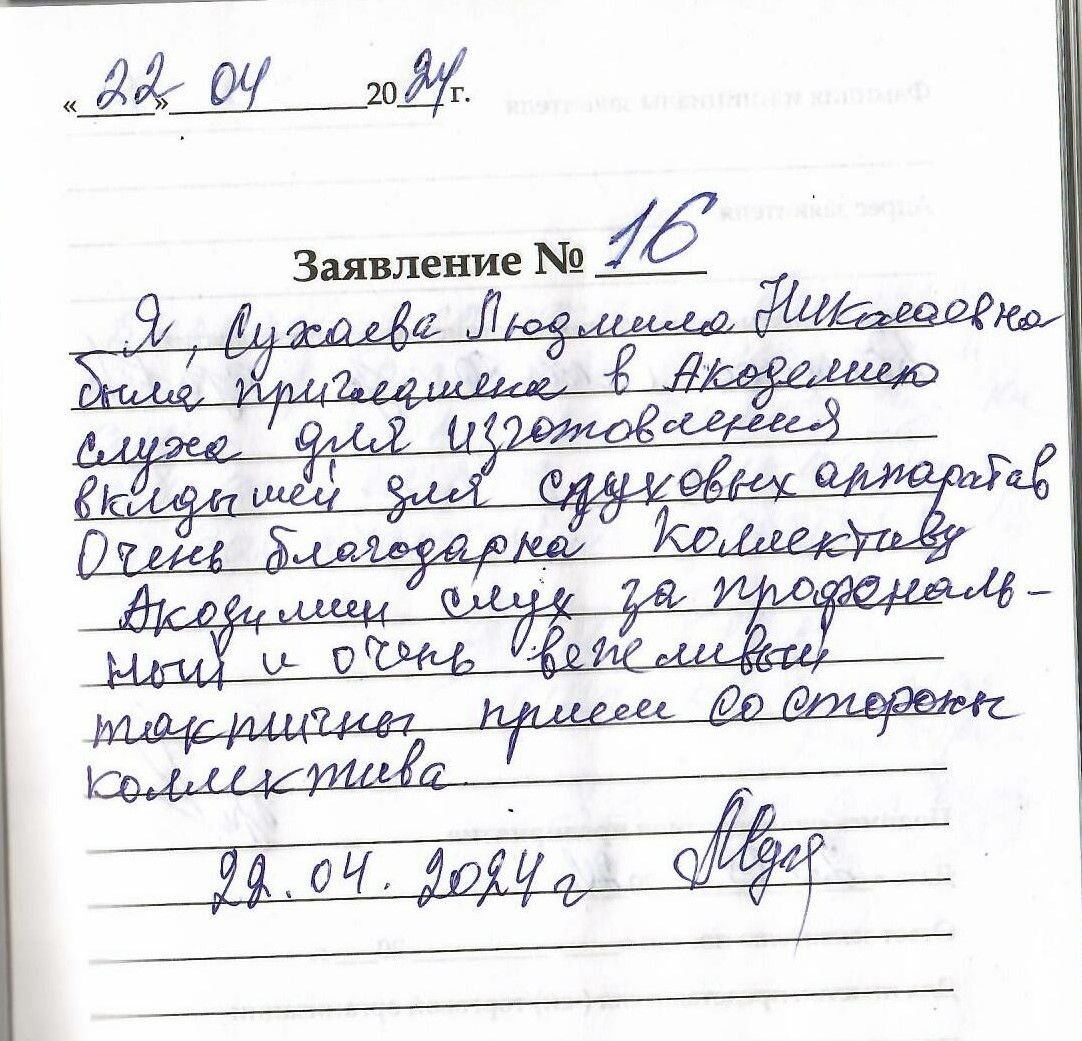 «22» 04 2024 г.
Заявление № 16
Я, Сухаева Людмила Николаевна
была приглашена в Академию
слуха для изготовления
вкладышей для слуховых аппаратав
Очень благодарна Коллективу
Акодимии слух за профональ-
ный и очень вежливый
тактичны прием со стороны
коллектива.
22.04.2024 г